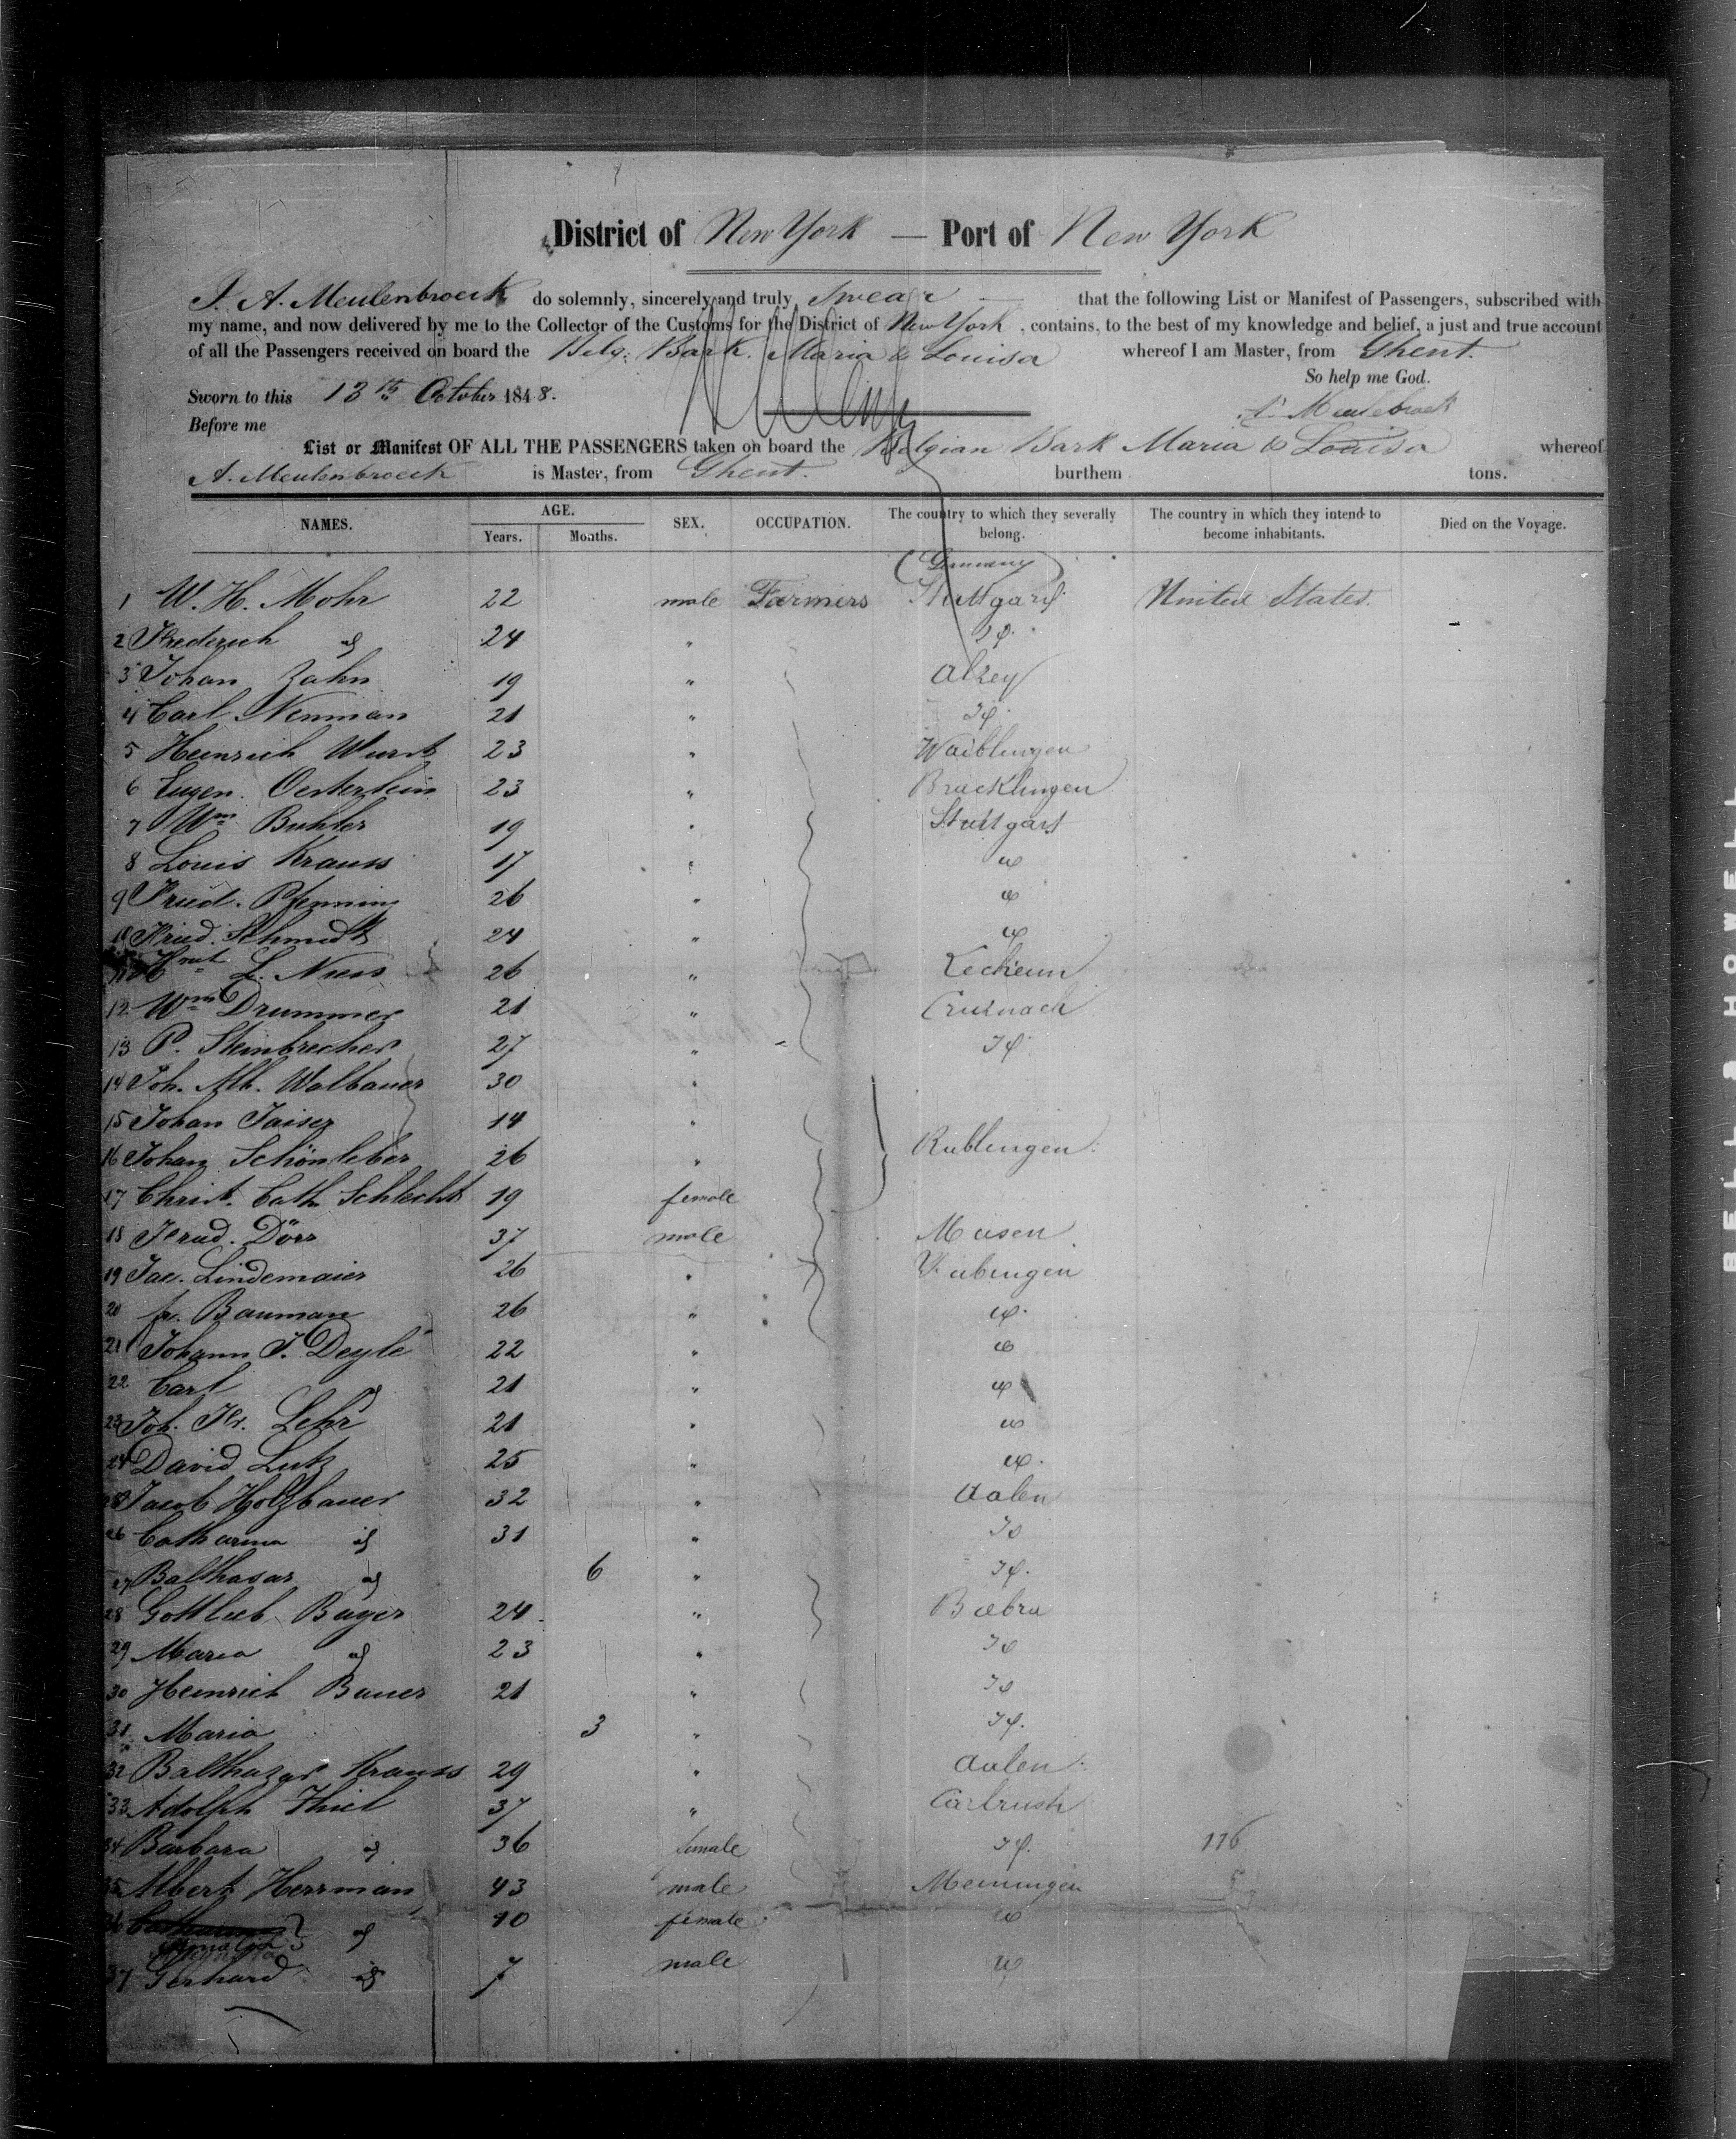 District of New York — Port of New York
I. A. Meulenbroeck do solemnly, sincerely and truly Swear — that the following List or Manifest of Passengers, subscribed with
my name, and now delivered by me to the Collector of the Customs for the District of New York, contains, to the best of my knowledge and belief, a just and true account
of all the Passengers received on board the Belg: Bark. Maria & Louisa whereof I am Master, from Ghent.
So help me God.
Sworn to this 13th October 1848.
A. Meulebroek
Before me
List or Manifest OF ALL THE PASSENGERS taken on board the Belgian Bark Maria & Louisa whereof
A. Meulenbroeck is Master, from Ghent. burthem tons.
NAMES. AGE. Years. Months. SEX. OCCUPATION. The country to which they severally belong. The country in which they intend to become inhabitants. Died on the Voyage.
(Germany)
1 W. H. Mohr 22 male Farmers Stuttgard United States.
2 Frederich id 24 " Id.
3 Johan Zahn 19 " Alzey
4 Carl Nenman 21 " Id.
5 Heinrich Wurst 23 " Waiblingen
6 Eugen. Oesterlein 23 " Bracklingen
7 Wm Buhler 19 " Stuttgart
8 Louis Krauss 17 " id
9 Fried. Pfenning 26 " id
10 Fried. Schmidt 24 " id
11 L. Niess 26 "
12 Wm Drummer 21 " Cruznach
13 P. Steinbrecher 27 " Id
14 Joh. Alb. Walbauer 30 "
15 Johan Jaiser 14 "
16 Johan Schönleber 26 " Rublingen.
17 Christ. Cath. Schlecht 19 female
18 Frud. Dörr 37 male Meisen
19 Jac. Lindemaier 26 "
20 fr. Bauman 26 " id.
21 Johann J. Deyle 22 " id
22 Carl id 21 " id
23 Joh. Fr. Lehr 21 " id
24 David Lutz 25 " id.
25 Jacob Holzbauer 32 " Aalen
26 Catharina id 31 " Id
27 Balthasar id 6 " Id.
28 Gottlieb Bayer 24 " Bebra
29 Maria id 23 " Id
30 Heinrich Bauer 21 " Id
31 Maria 3 " Id.
32 Balthazar Krauss 29 " Aalen.
33 Adolph Thiel 37 " Carlrush
34 Barbara id 36 female Id. 116
35 Albert Herrman 43 male Meiningen 5
36 id 10 female id
37 Gerhard id 7 male id
BELL & HOWELL